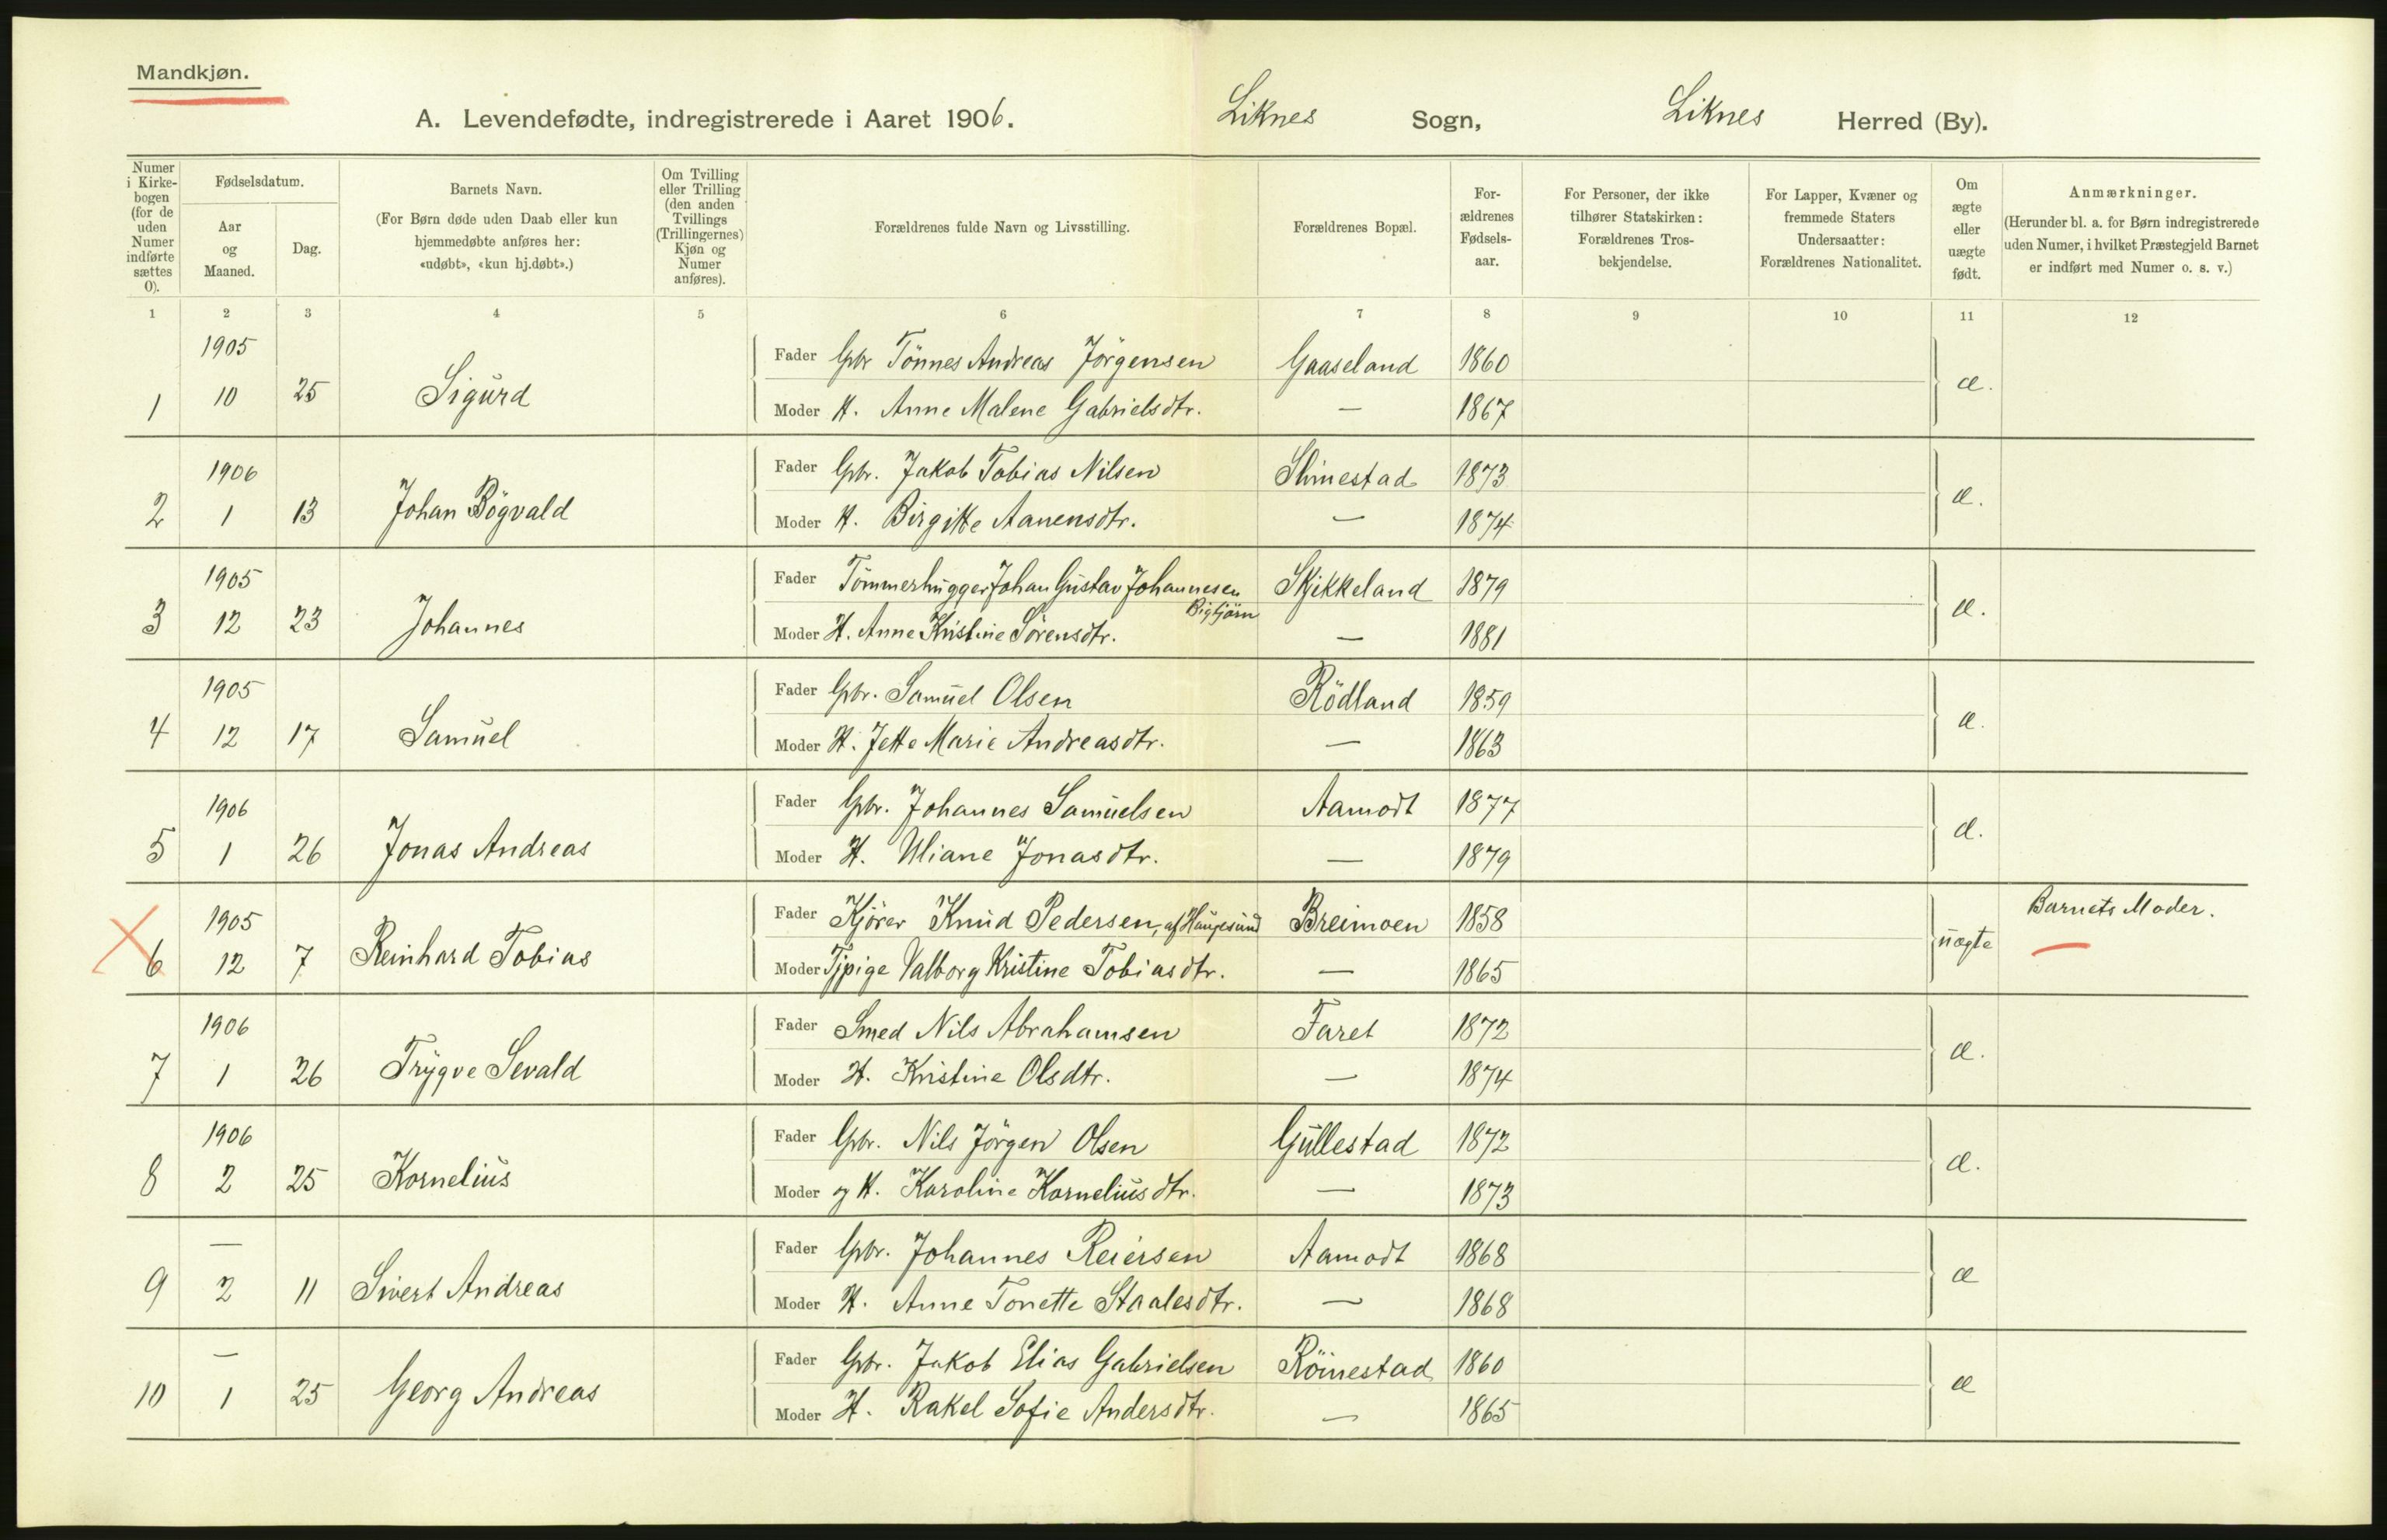 Mandkjøn.
A. Levendefødte, indregistrerede i Aaret 1906. Liknes Sogn, Liknes Herred (By).
Numer i Kirkebogen (for de uden Numer indførte sættes 0).
Fødselsdatum.
Aar og Maaned.
Dag.
Barnets Navn.
(For Børn døde uden Daab eller kun hjemmedøbte anføres her: «udøbt», «kun hj.døbt».)
Om Tvilling eller Trilling (den anden Tvillings (Trillingernes) Kjøn og Numer anføres).
Forældrenes fulde Navn og Livsstilling.
Forældrenes Bopæl.
For-ældrenes Fødsels-aar.
For Personer, der ikke tilhører Statskirken: Forældrenes Tros-bekjendelse.
For Lapper, Kvæner og fremmede Staters Undersaatter: Forældrenes Nationalitet.
Om ægte eller uægte født.
Anmærkninger.
(Herunder bl. a. for Børn indregistrerede uden Numer, i hvilket Præstegjeld Barnet er indført med Numer o. s. v.)
1 2 3 4 5 6 7 8 9 10 11 12
1905 Fader Gbr Tönnes Andreas Jörgensen Gaaseland 1860
1 10 25 Sigurd æ.
Moder H. Anne Malene Gabrielsdtr. — 1867
1906 Fader Gbr. Jakob Tobias Nilsen Slimestad 1873
2 1 13 Johan Bögvald æ.
Moder H. Birgitte Aanensdtr. — 1874
1905 Fader Tömmerhugger Johan Gustav Johannesen Skjekkeland 1879
Bigtjörn
3 12 23 Johannes æ.
Moder H. Anne Kristine Sörensdtr. — 1881
1905 Fader Gbr. Samuel Olsen Rödland 1859
4 12 17 Samuel æ.
Moder H. Jette Marie Andreasdtr. — 1863
1906 Fader Gbr. Johannes Samuelsen Aamodt 1877
5 1 26 Jonas Andreas æ.
Moder H. Uliane Jonasdtr. — 1879
1905 Fader Kjörer Knud Pedersen, af Haugesund Breimoen 1858 Barnets Moder.
6 12 7 Reinhard Tobias uægte
Moder Tjpige Valborg Kristine Tobiasdtr. — 1865
1906 Fader Smed Nils Abrahamsen Faret 1872
7 1 26 Trygve Sevald æ.
Moder H. Kristine Olsdtr. — 1874
1906 Fader Gbr. Nils Jörgen Olsen Gullestad 1872
8 2 25 Kornelius æ.
Moder og H. Karoline Korneliusdtr. — 1873
— Fader Gbr. Johannes Reiersen Aamodt 1868
9 2 11 Sivert Andreas æ
Moder H. Anne Tonette Staalesdtr. — 1868
— Fader Gbr. Jakob Elias Gabrielsen Röinestad 1860
10 1 25 Georg Andreas æ
Moder H. Rakel Sofie Andersdtr. — 1865